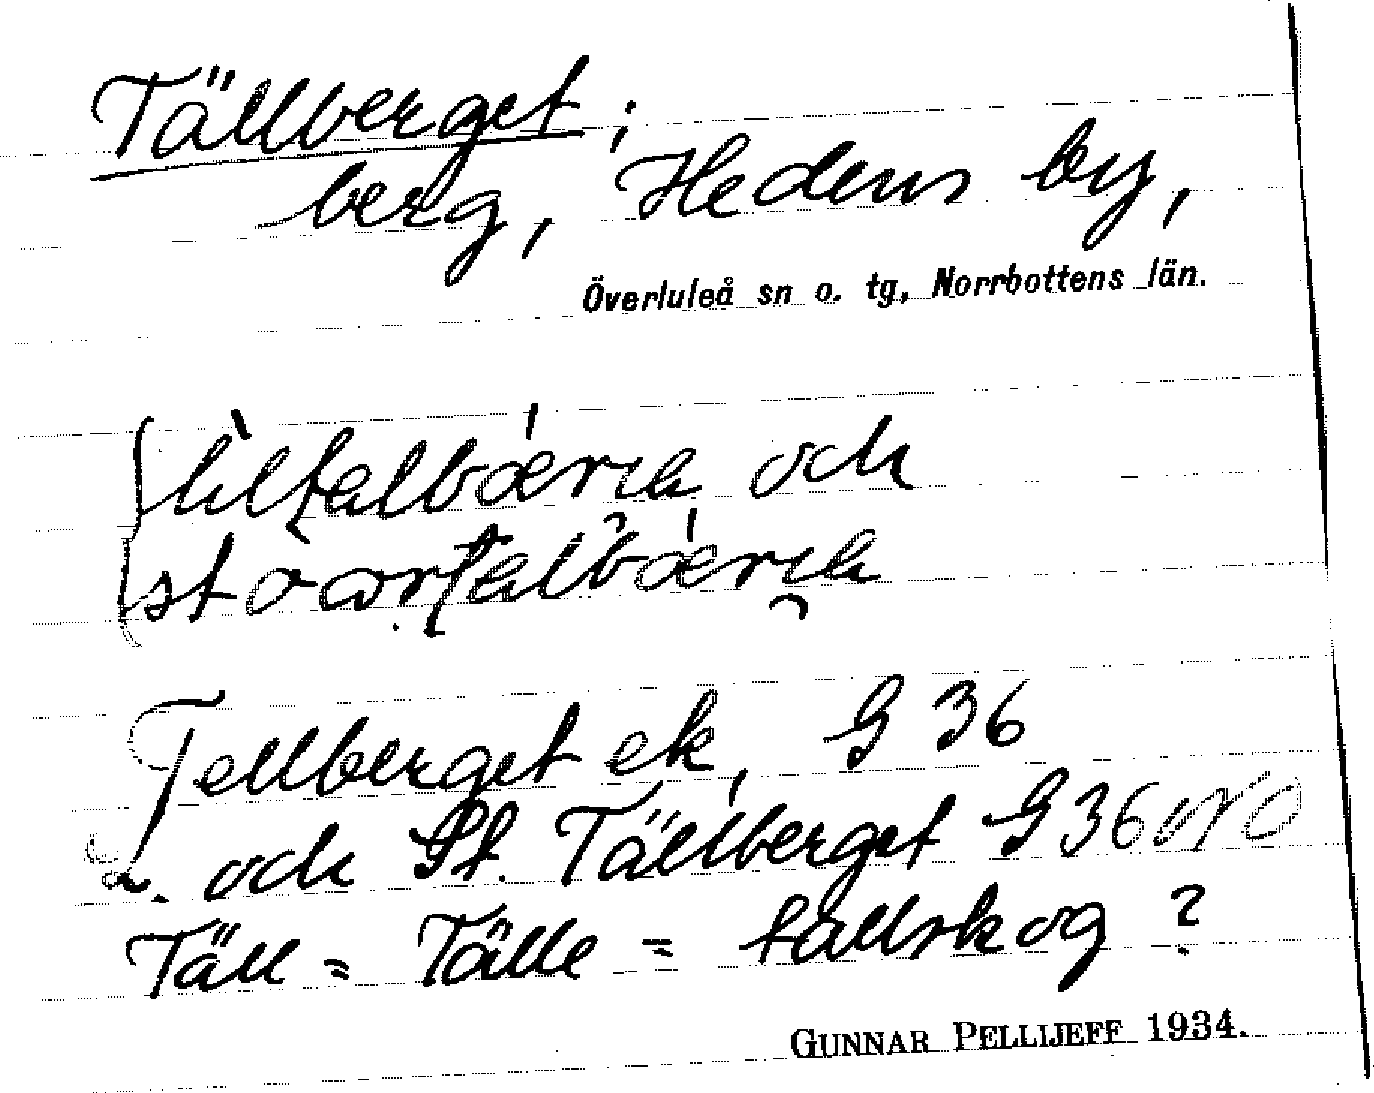 Tällberget;
berg, Hedens by,
Överluleå sn o. tg, Norrbottens län.
och
Tellberget ek, G 36
L. och St. Tällberget G 36 o NO
Täll = Tälle = tallskog ?
GUNNAR PELLIJEFF 1934.